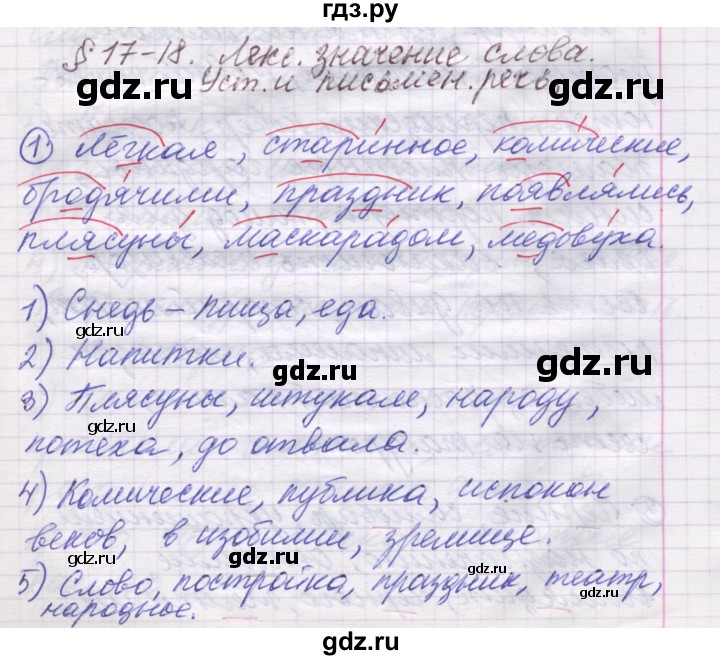 гдз.ру
§ 17-18. Лекс. значение слова.
Уст. и письмен. речь
1. Лёгкая, старинное, комические,
бродячими, праздник, появлялись,
плясуны, маскарадом, медовуха.
gdz.ru gdz.ru
1) Снедь – пища, еда.
gdz.ru
2) Напитки.
gdz.ru gdz.ru
3) Плясуны, штукам, народу,
gdz.ru
потеха, до отвала.
gdz.ru
4) Комические, публика, испокон
веков, в изобилии, зрелище.
gdz.ru gdz.ru
5) Слово, постройка, праздник, театр,
народное.
gdz.ru
gdz.ru